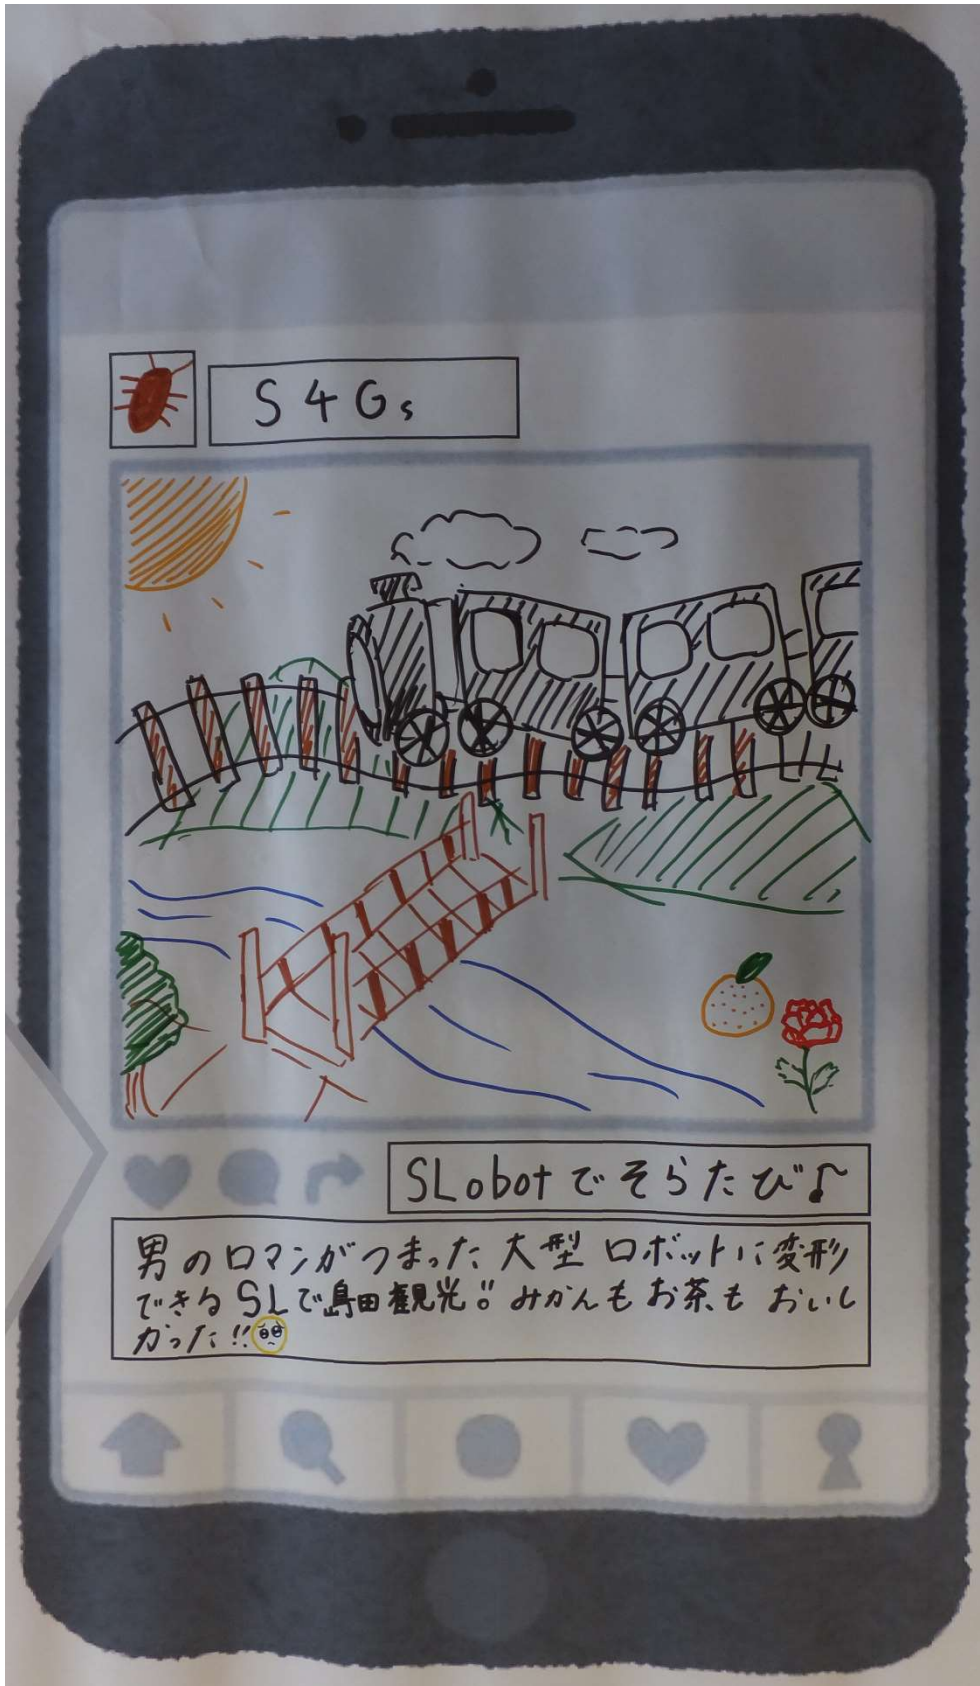 S4Gs
SLobotでそらたび♪
男のロマンがつまった大型ロボットに変形
できるSLで島田観光!! みかんもお茶もおいし
かった!!🥺